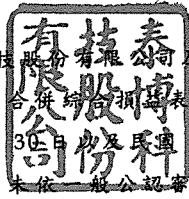 泰博科
技股份
有限公司
技股份有限公司
合併綜合損益表
30 日以及民國
未依一般公認審